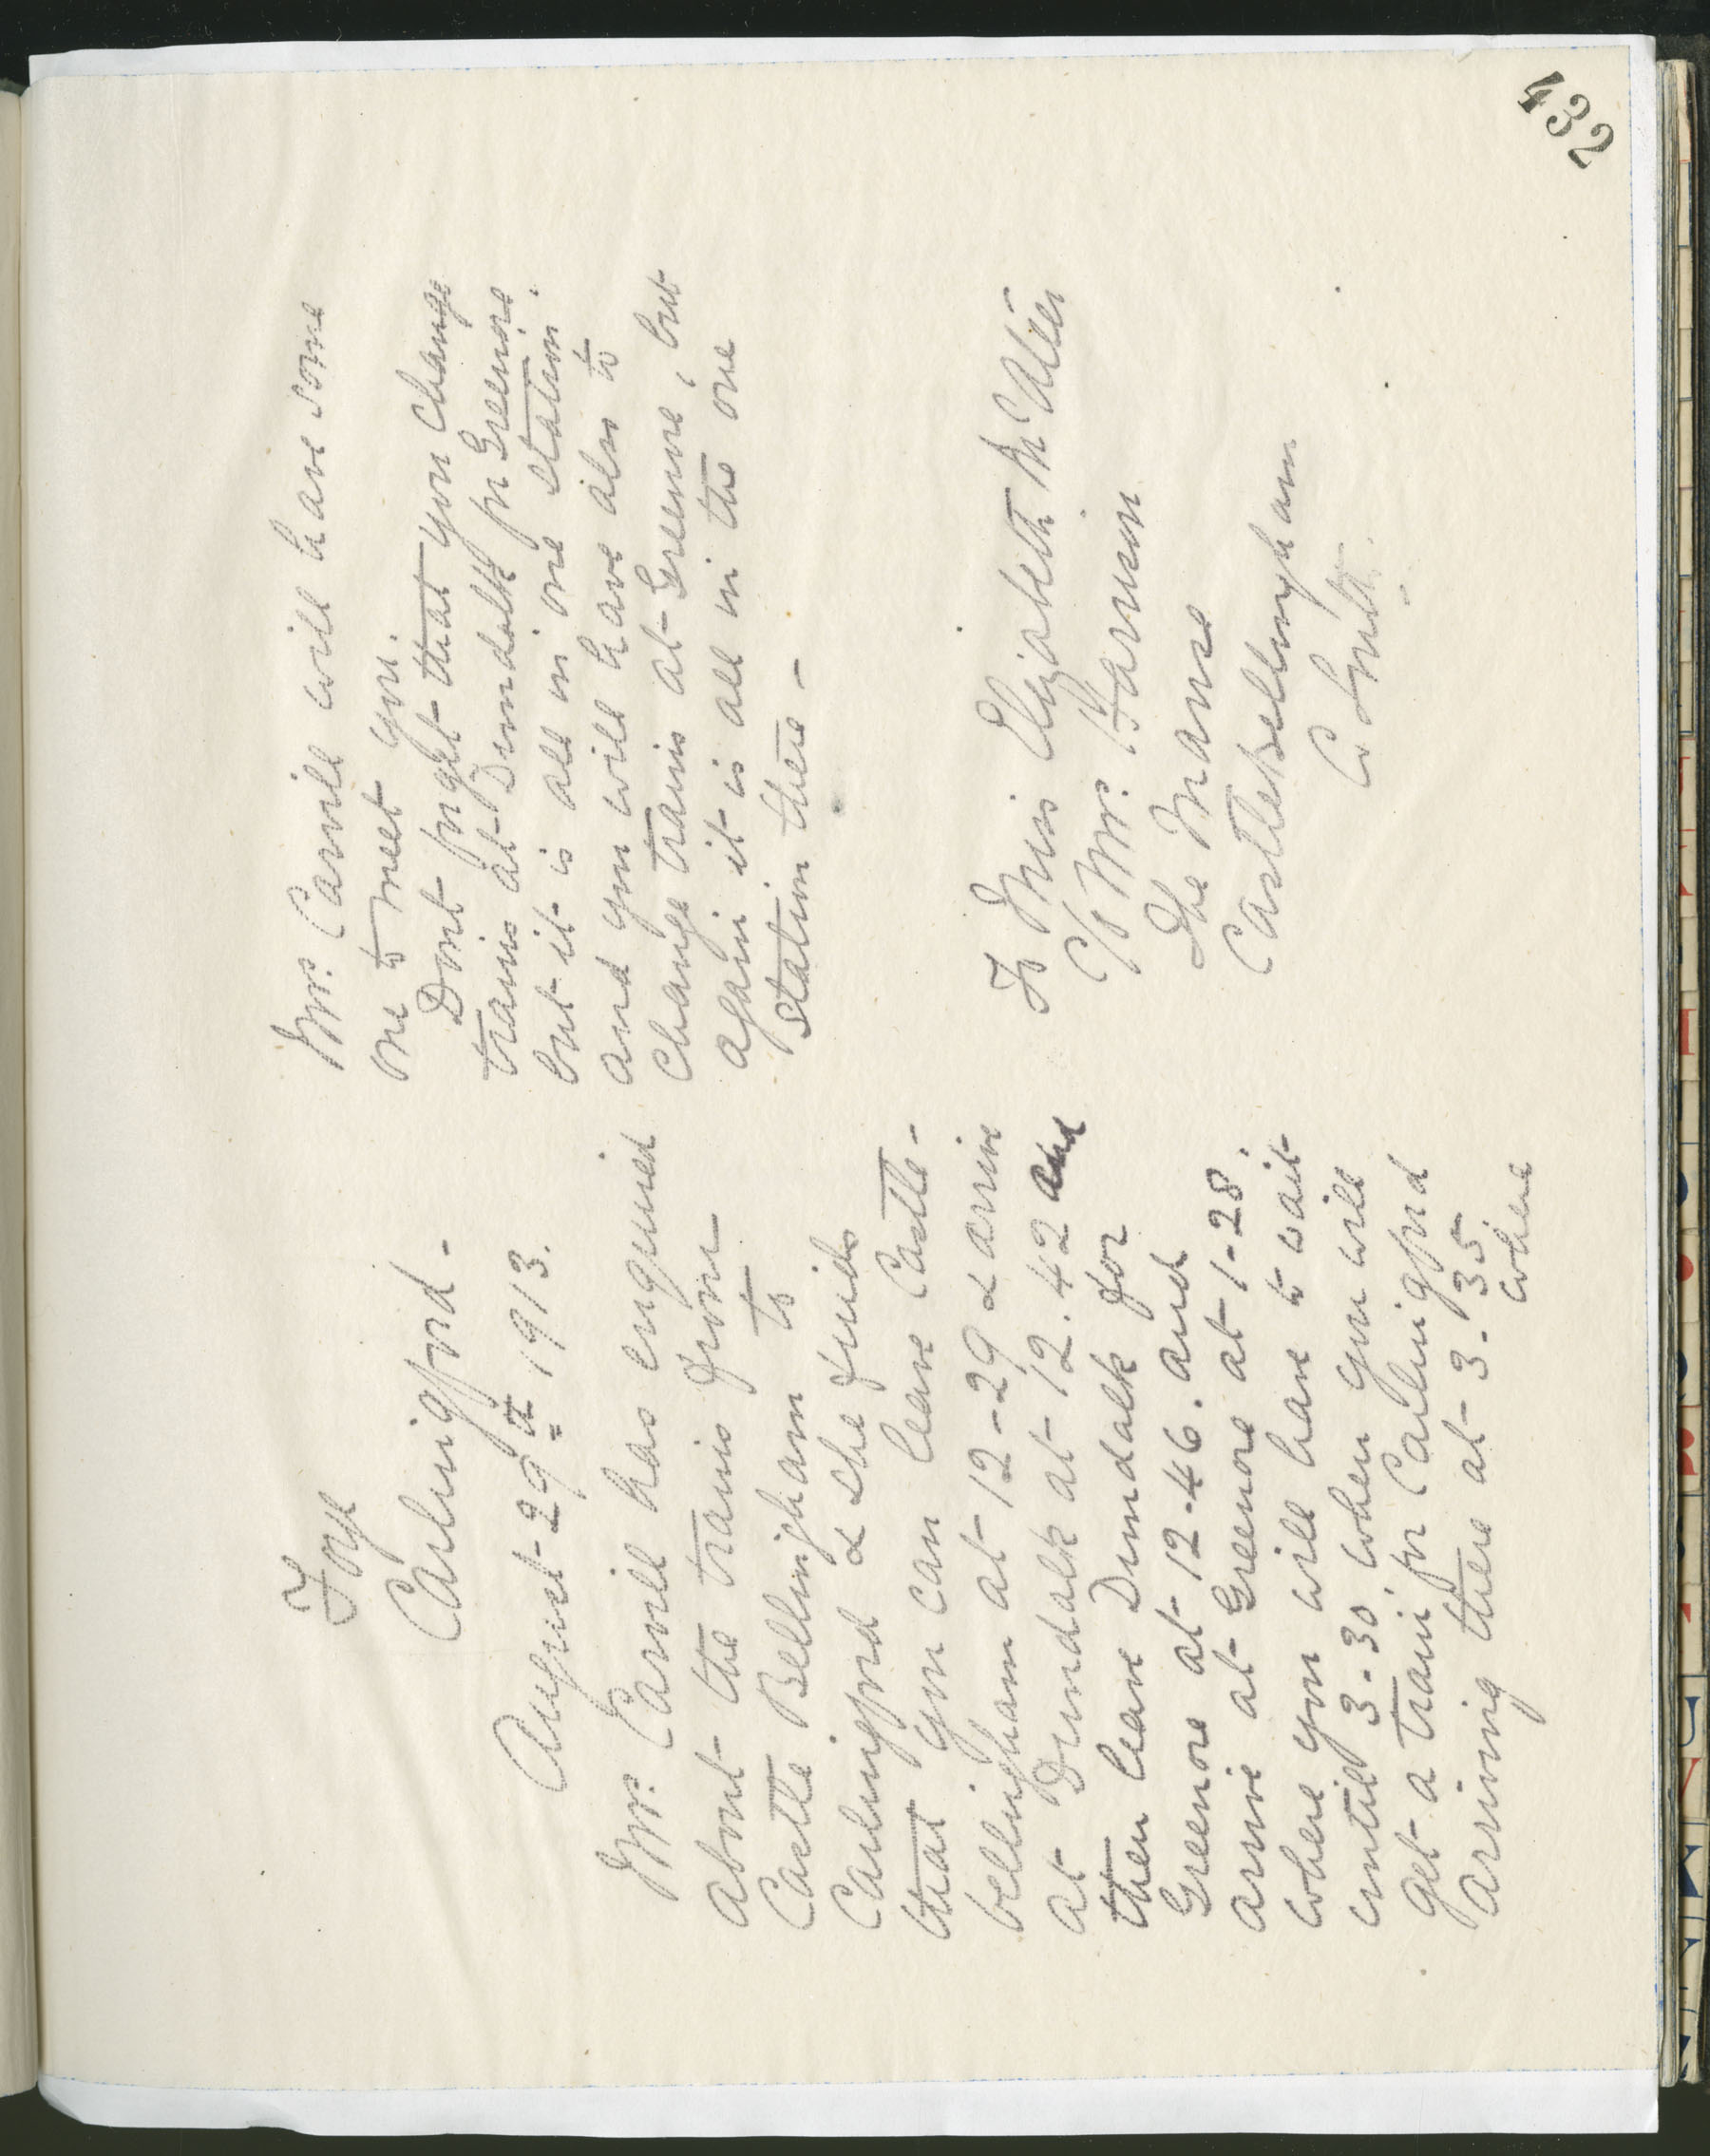 Foye
Carlingford -
August 29th 1913.
Mrs. Carvill has enquired
about the trains from
Castle Bellingham to
Carlingford & she finds
that you can leave Castle-
bellingham at 12-29 & arrive
at Dundalk at 12.42 and
then leave Dundalk for
Greenore at 12-46. and
arrive at Greenore at 1-28.
where you will have to wait
until 3-30, when you will
get a train for Carlingford
arriving there at 3-35.
where
Mrs. Carvill will have some
one to meet you.
Dont forget that you change
trains at Dundalk for Greenore.
but it is all in one station.
and you will have also to
change trains at Greenore, but
again it is all in the one
station there -
To Miss Elizabeth McAteer
C/o Mrs. Harrison
The Manse
Castlebellingham
Co Louth.
432